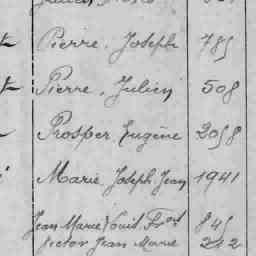 Pierre, Joseph 785
Pierre, Julien 508
Prosper, Eugène 2058
Marie, Joseph, Jean 1941
Jean Marie Louis Frat 845
Victor Jean Marie 212